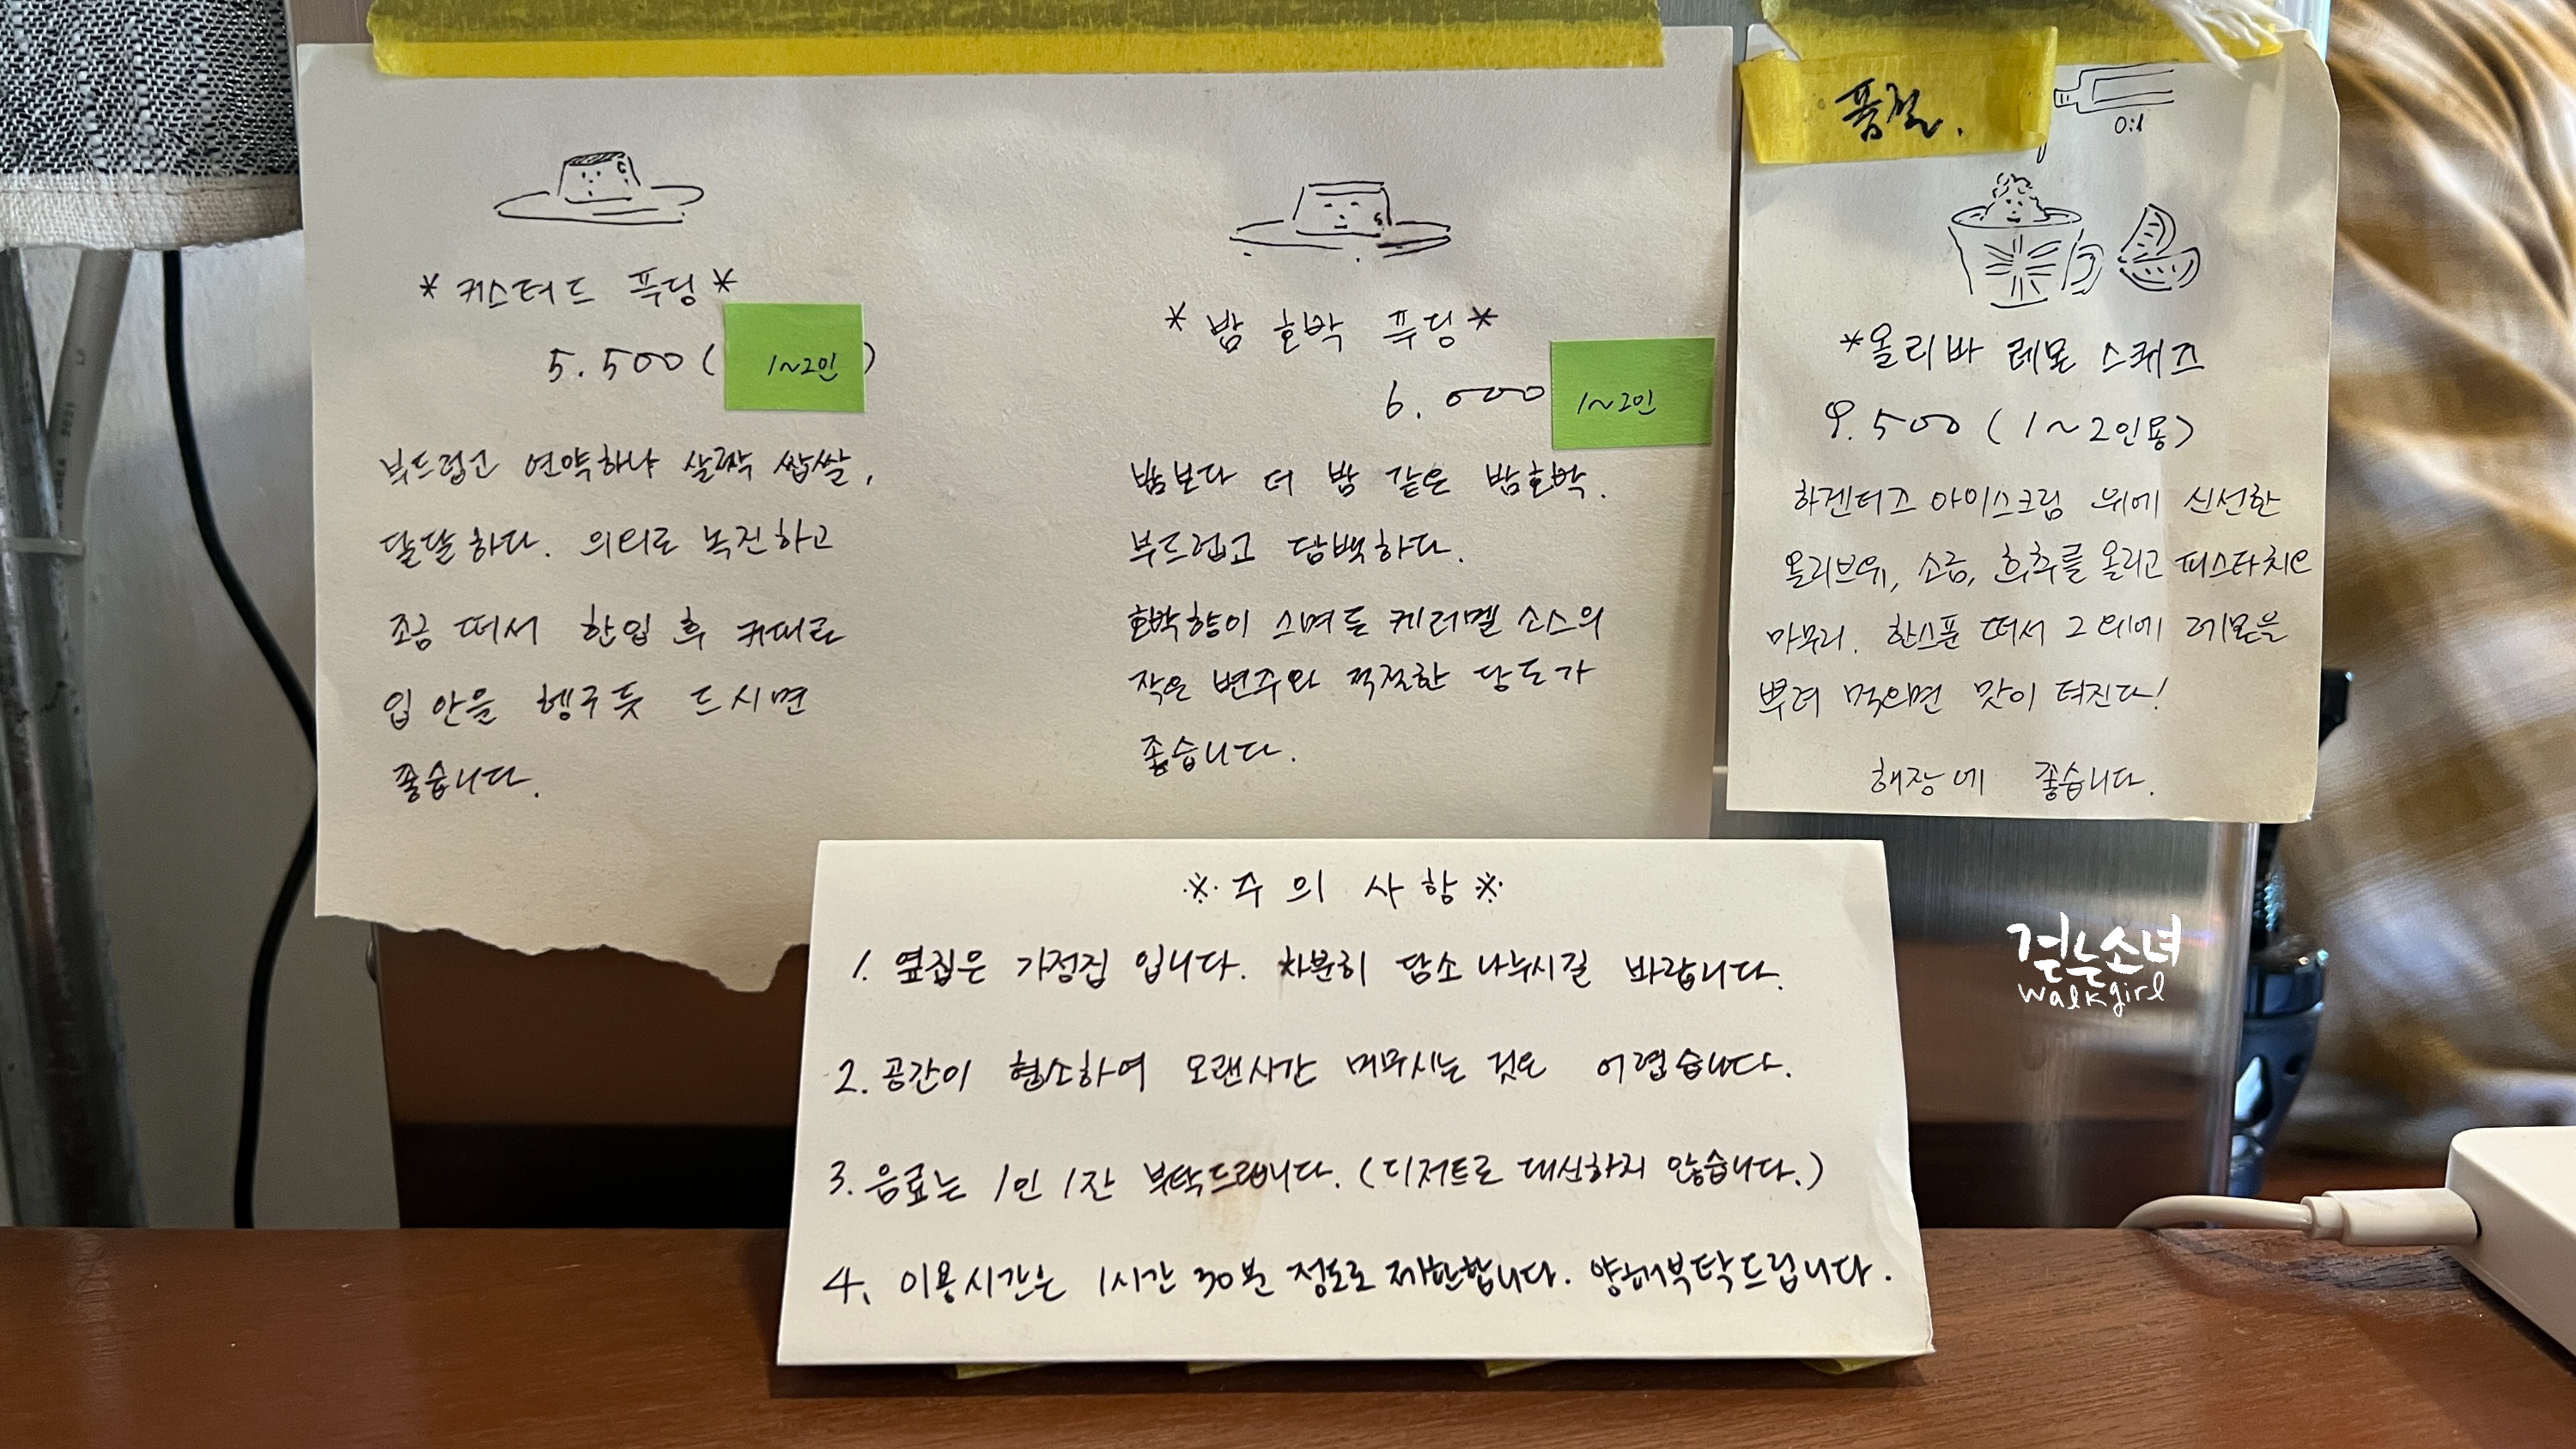 *커스터드 푸딩*
5.500(1~2인)
부드럽고 연약하나 살짝 쌉쌀,
달달하다. 의외로 녹진하고
조금 떠서 한입 후 커피로
입 안을 헹구듯 드시면
좋습니다.
*밤 호박 푸딩*
6.000 1~2인
밤보다 더 밤 같은 밤호박.
부드럽고 담백하다.
호박향이 스며든 케러멜 소스의
작은 변주와 적절한 당도가
좋습니다.
품절.
*올리바 레몬 스퀴즈
9.500 (1~2인용)
하겐더즈 아이스크림 위에 신선한
올리브유, 소금, 후추를 올리고 피스타치오
마무리. 한스푼 떠서 그 위에 레몬을
뿌려 먹으면 맛이 터진다!
해장에 좋습니다.
※주의사항※
1. 옆집은 가정집 입니다. 차분히 담소 나누시길 바랍니다.
2. 공간이 협소하여 오랜시간 머무시는 것은 어렵습니다.
3. 음료는 1인 1잔 부탁드립니다. (디저트로 대신하지 않습니다.)
4. 이용시간은 1시간 30분 정도로 제한합니다. 양해부탁드립니다.
걷는소녀
walkgirl